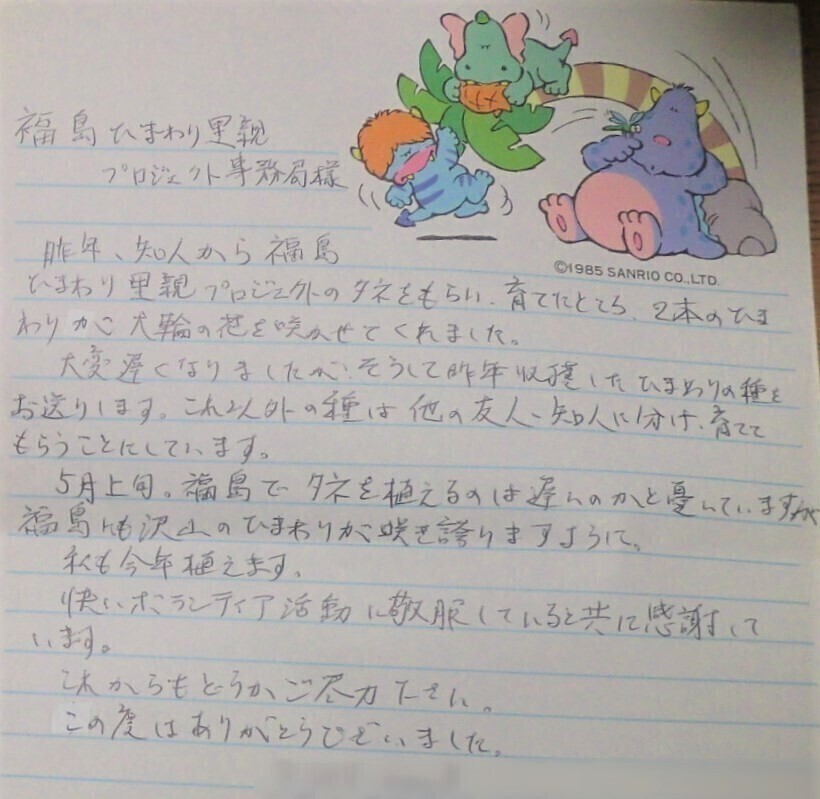 福島ひまわり里親
プロジェクト事務局様
©1985 SANRIO CO.,LTD.
昨年、知人から福島
ひまわり里親プロジェクトのタネをもらい、育てたところ、2本のひま
わりが大輪の花を咲かせてくれました。
大変遅くなりましたが、そうして昨年収穫したひまわりの種を
お送りします。これ以外の種は他の友人、知人に分け、育てて
もらうことにしています。
5月上旬。福島でタネを植えるのは遅いのかと憂いていますが
福島にも沢山のひまわりが咲き誇りますように。
私も今年植えます。
快いボランティア活動に敬服していると共に感謝して
います。
これからもどうかご尽力下さい。
この度はありがとうございました。